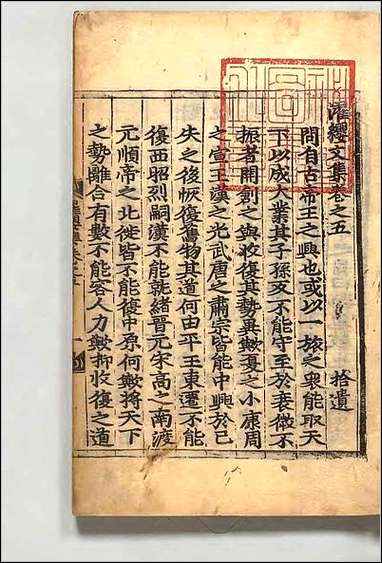 濯纓文集卷之五
拾遺
問有古帝王之興也或以一旅之衆能取天
下以成大業其子孫又不能守至於衰微不
振者開創之與收復其勢異歟夏之小康周
之宣王漢之光武唐之肅宗皆能中興於已
失之後恢復舊物其道何由平王東遷不能
復西昭烈嗣漢不能就緖晉元宋高之南渡
元順帝之北徙皆不能復中原何歟將天下
之勢離合有數不能容人力歟抑收復之道